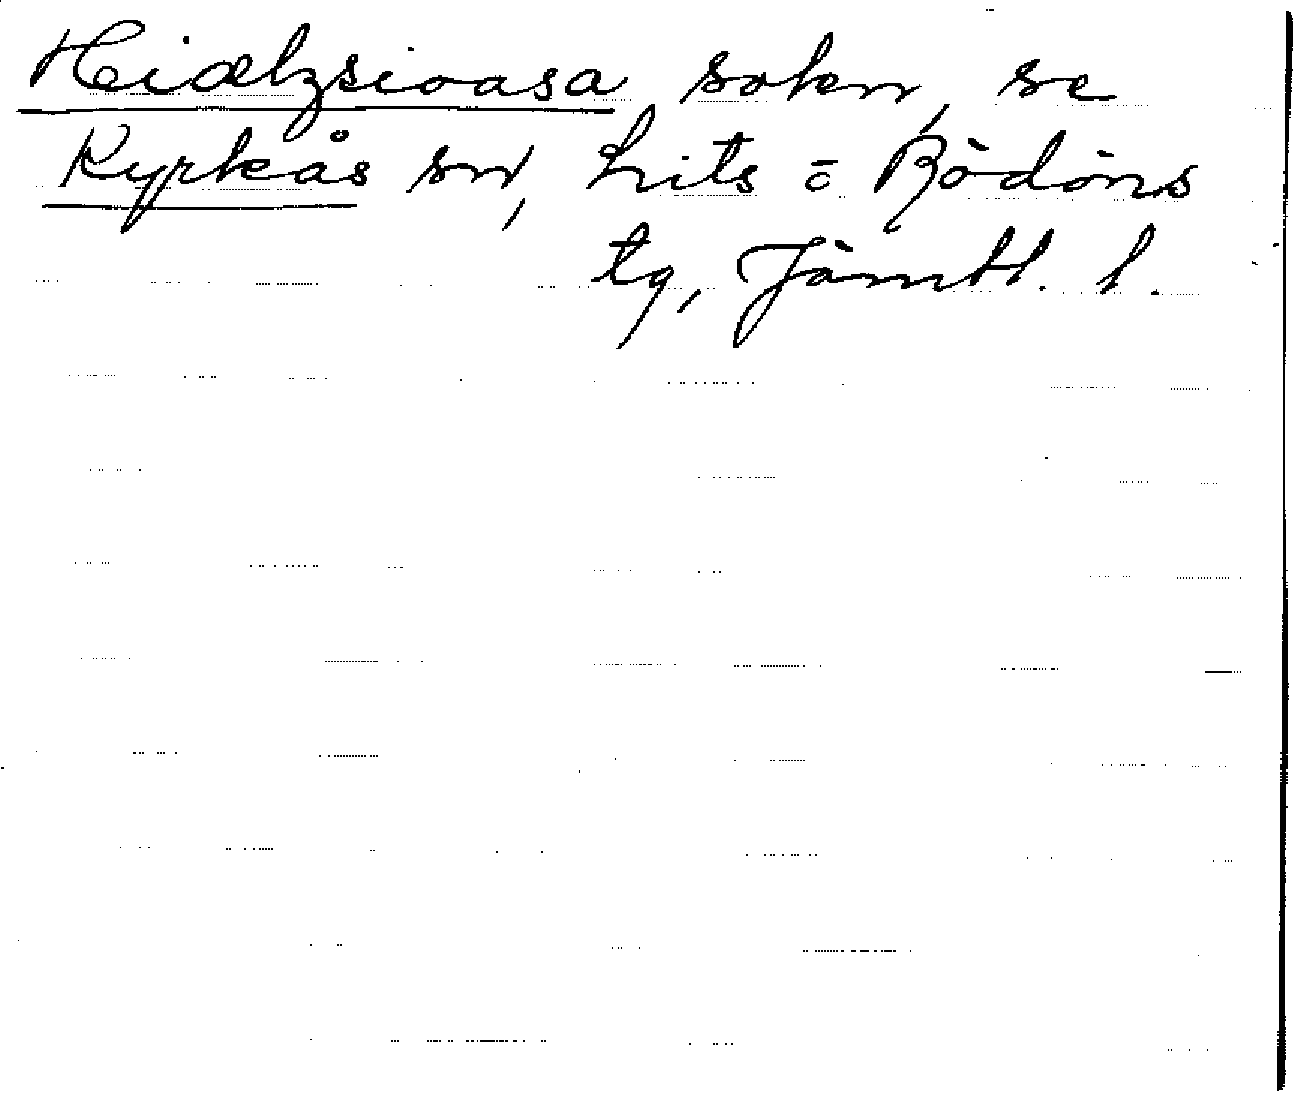 Hiælzsioasa sokn, se
Kyrkås sn, Lits o Rödöns
tg, Jämtl. l.